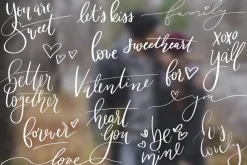 You are
Sweet
let's kiss
family
love Sweetheart
xoxo
y'all
better
together
Valentine
for
you
forever
heart
you
be
mine
it's
lovely
love